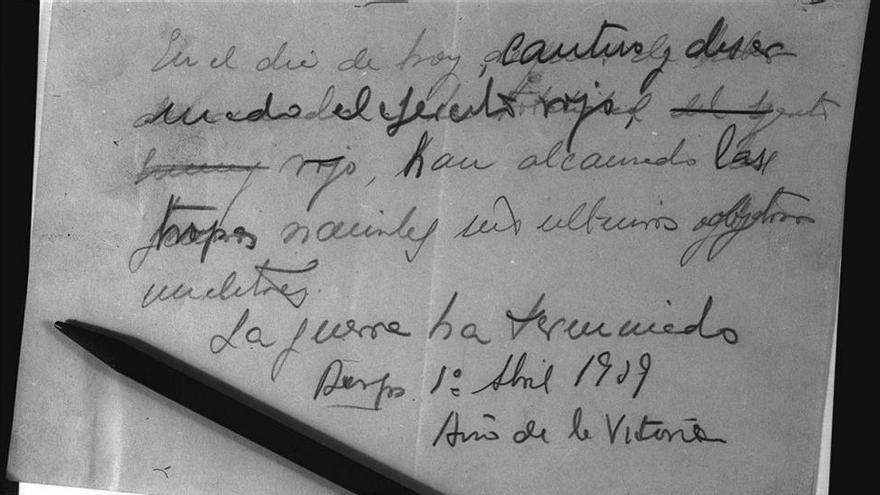 En el dia de hoy, cautivo y desar
mado el Ejercito rojo,
rojo, han alcanzado las
tropas nacionales sus ultimos objetivos
militares.
La guerra ha terminado
Burgos 1º Abril 1939
Año de la Victoria